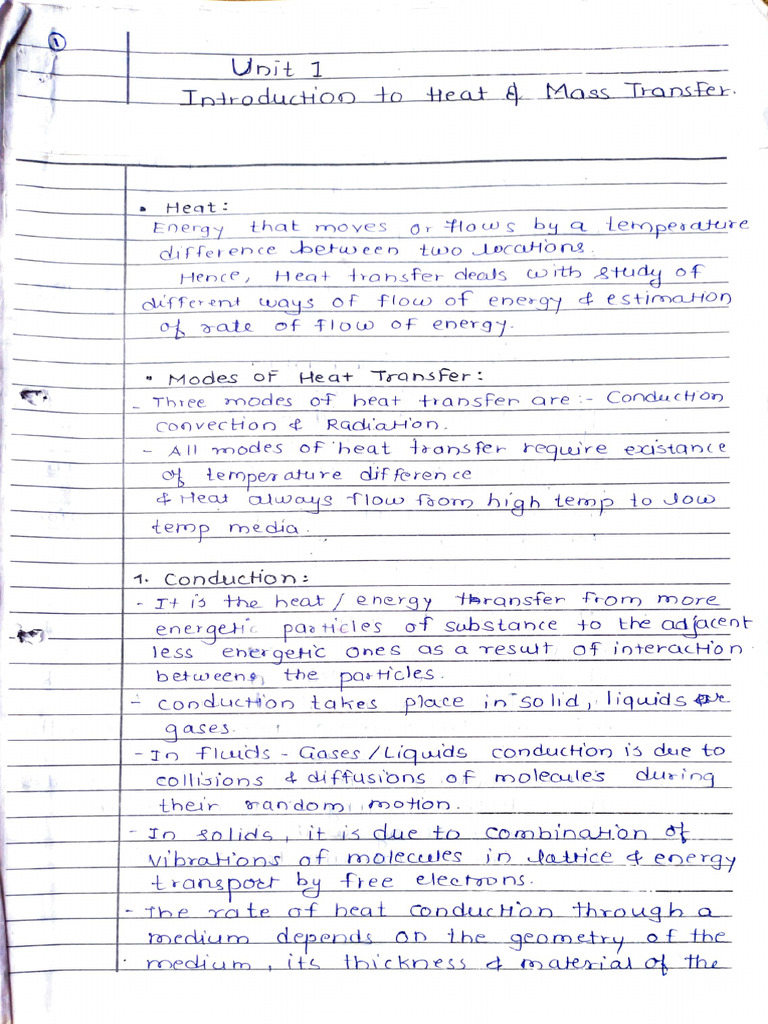 1
Unit 1
Introduction to Heat & Mass Transfer.
• Heat:
Energy that moves or flows by a temperature
difference between two locations.
Hence, Heat transfer deals with study of
different ways of flow of energy & estimation
of rate of flow of energy.
• Modes of Heat Transfer:
- Three modes of heat transfer are :- Conduction
convection & Radiation.
- All modes of heat transfer require existance
of temperature difference
& Heat always flow from high temp to low
temp media.
1. Conduction:
- It is the heat / energy transfer from more
energetic particles of substance to the adjacent
less energetic ones as a result of interaction
between the particles.
- conduction takes place in solid, liquids or
gases.
- In fluids - Gases / Liquids conduction is due to
collisions & diffusions of molecules during
their random motion.
- In solids, it is due to combination of
vibrations of molecules in lattice & energy
transport by free electrons.
- The rate of heat conduction through a
medium depends on the geometry of the
medium, its thickness & material of the